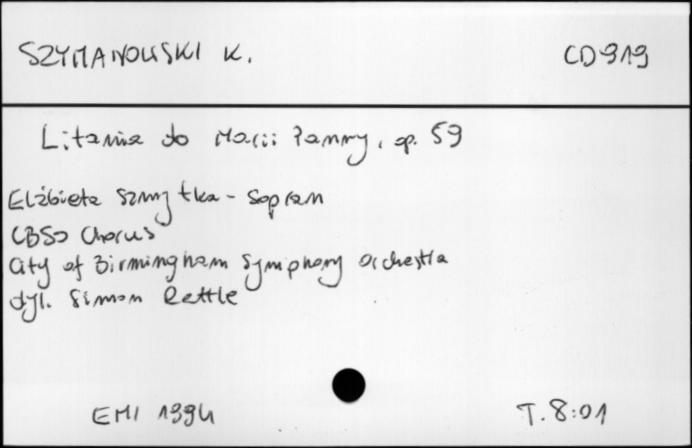 SZYMANOWSKI K. CD 919
Litania do Marii Panny, op. 59
Elżbieta Szmytka - sopran
CBSO Chorus
City of Birmingham Symphony Orchestra
dyr. Simon Rattle
EMI 1994 T. 8:01